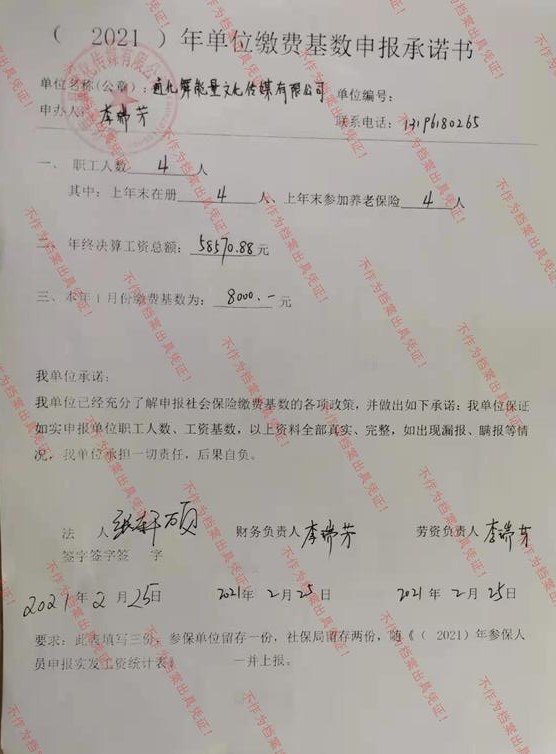 （ 2021 ）年单位缴费基数申报承诺书
单位名称(公章)：通化舞能量文化传媒有限公司 单位编号：
申办人：李瑞芳 联系电话：13196180265
一、 职工人数 4 人
其中：上年末在册 4 人、上年末参加养老保险 4 人
二、 年终决算工资总额： 58570.88 元
三、本年 1 月份缴费基数为： 8000.- 元
我单位承诺：
我单位已经充分了解申报社会保险缴费基数的各项政策，并做出如下承诺：我单位保证
如实申报单位职工人数、工资基数，以上资料全部真实、完整，如出现漏报、瞒报等情
况，我单位承担一切责任，后果自负。
法 人 财务负责人 李瑞芳 劳资负责人 李瑞芳
签字签字签 字
2021 年 2 月 25 日 2021 年 2 月 25 日 2021 年 2 月 25 日
要求：此表填写三份，参保单位留存一份，社保局留存两份，随《（ 2021）年参保人
员申报实发工资统计表》 一并上报。
不作为档案出具凭证！